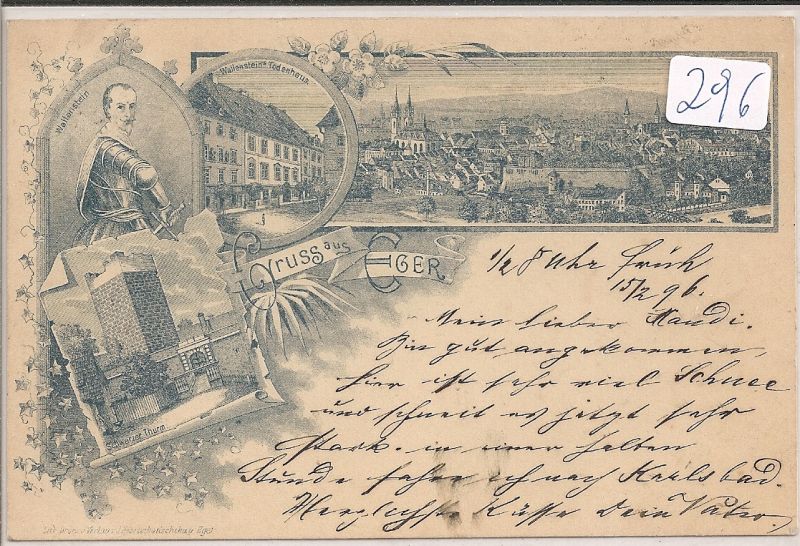 Wallenstein
Wallenstein's Todenhaus
296
Gruss aus EGER.
1/2 8 Uhr früh
15/2 96.
Mein lieber Mandi.
Bin gut angekommen,
hier ist sehr viel Schnee
und schneit es jetzt sehr
stark. in einer halben
Stunde fahre ich nach Karlsbad.
Herzlichste Küsse Dein Vater.
Thurm
Eger